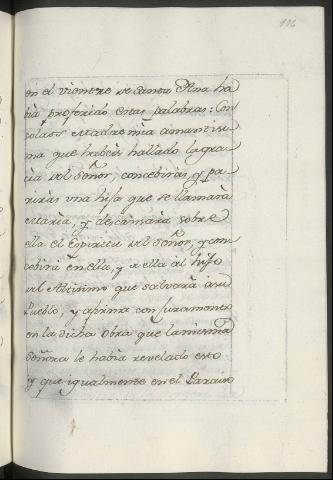 116
en el vientre de Santa Ana ha
bia proferido estas palabras: Con
solaos Madre mia amantisi
ma que habeis hallado la gra
cia del Señor, concebiras, y pa
riras una hija que se llamará
Maria, y descansará sobre
ella el Espiritu del Señor, y con
cebirá en ella, y de ella al hijo
del Altisimo que salvará a su
Pueblo, y afirma con juramento
en la dicha obra que la misma
Señora le habia revelado esto
y que igualmente en el Paraiso